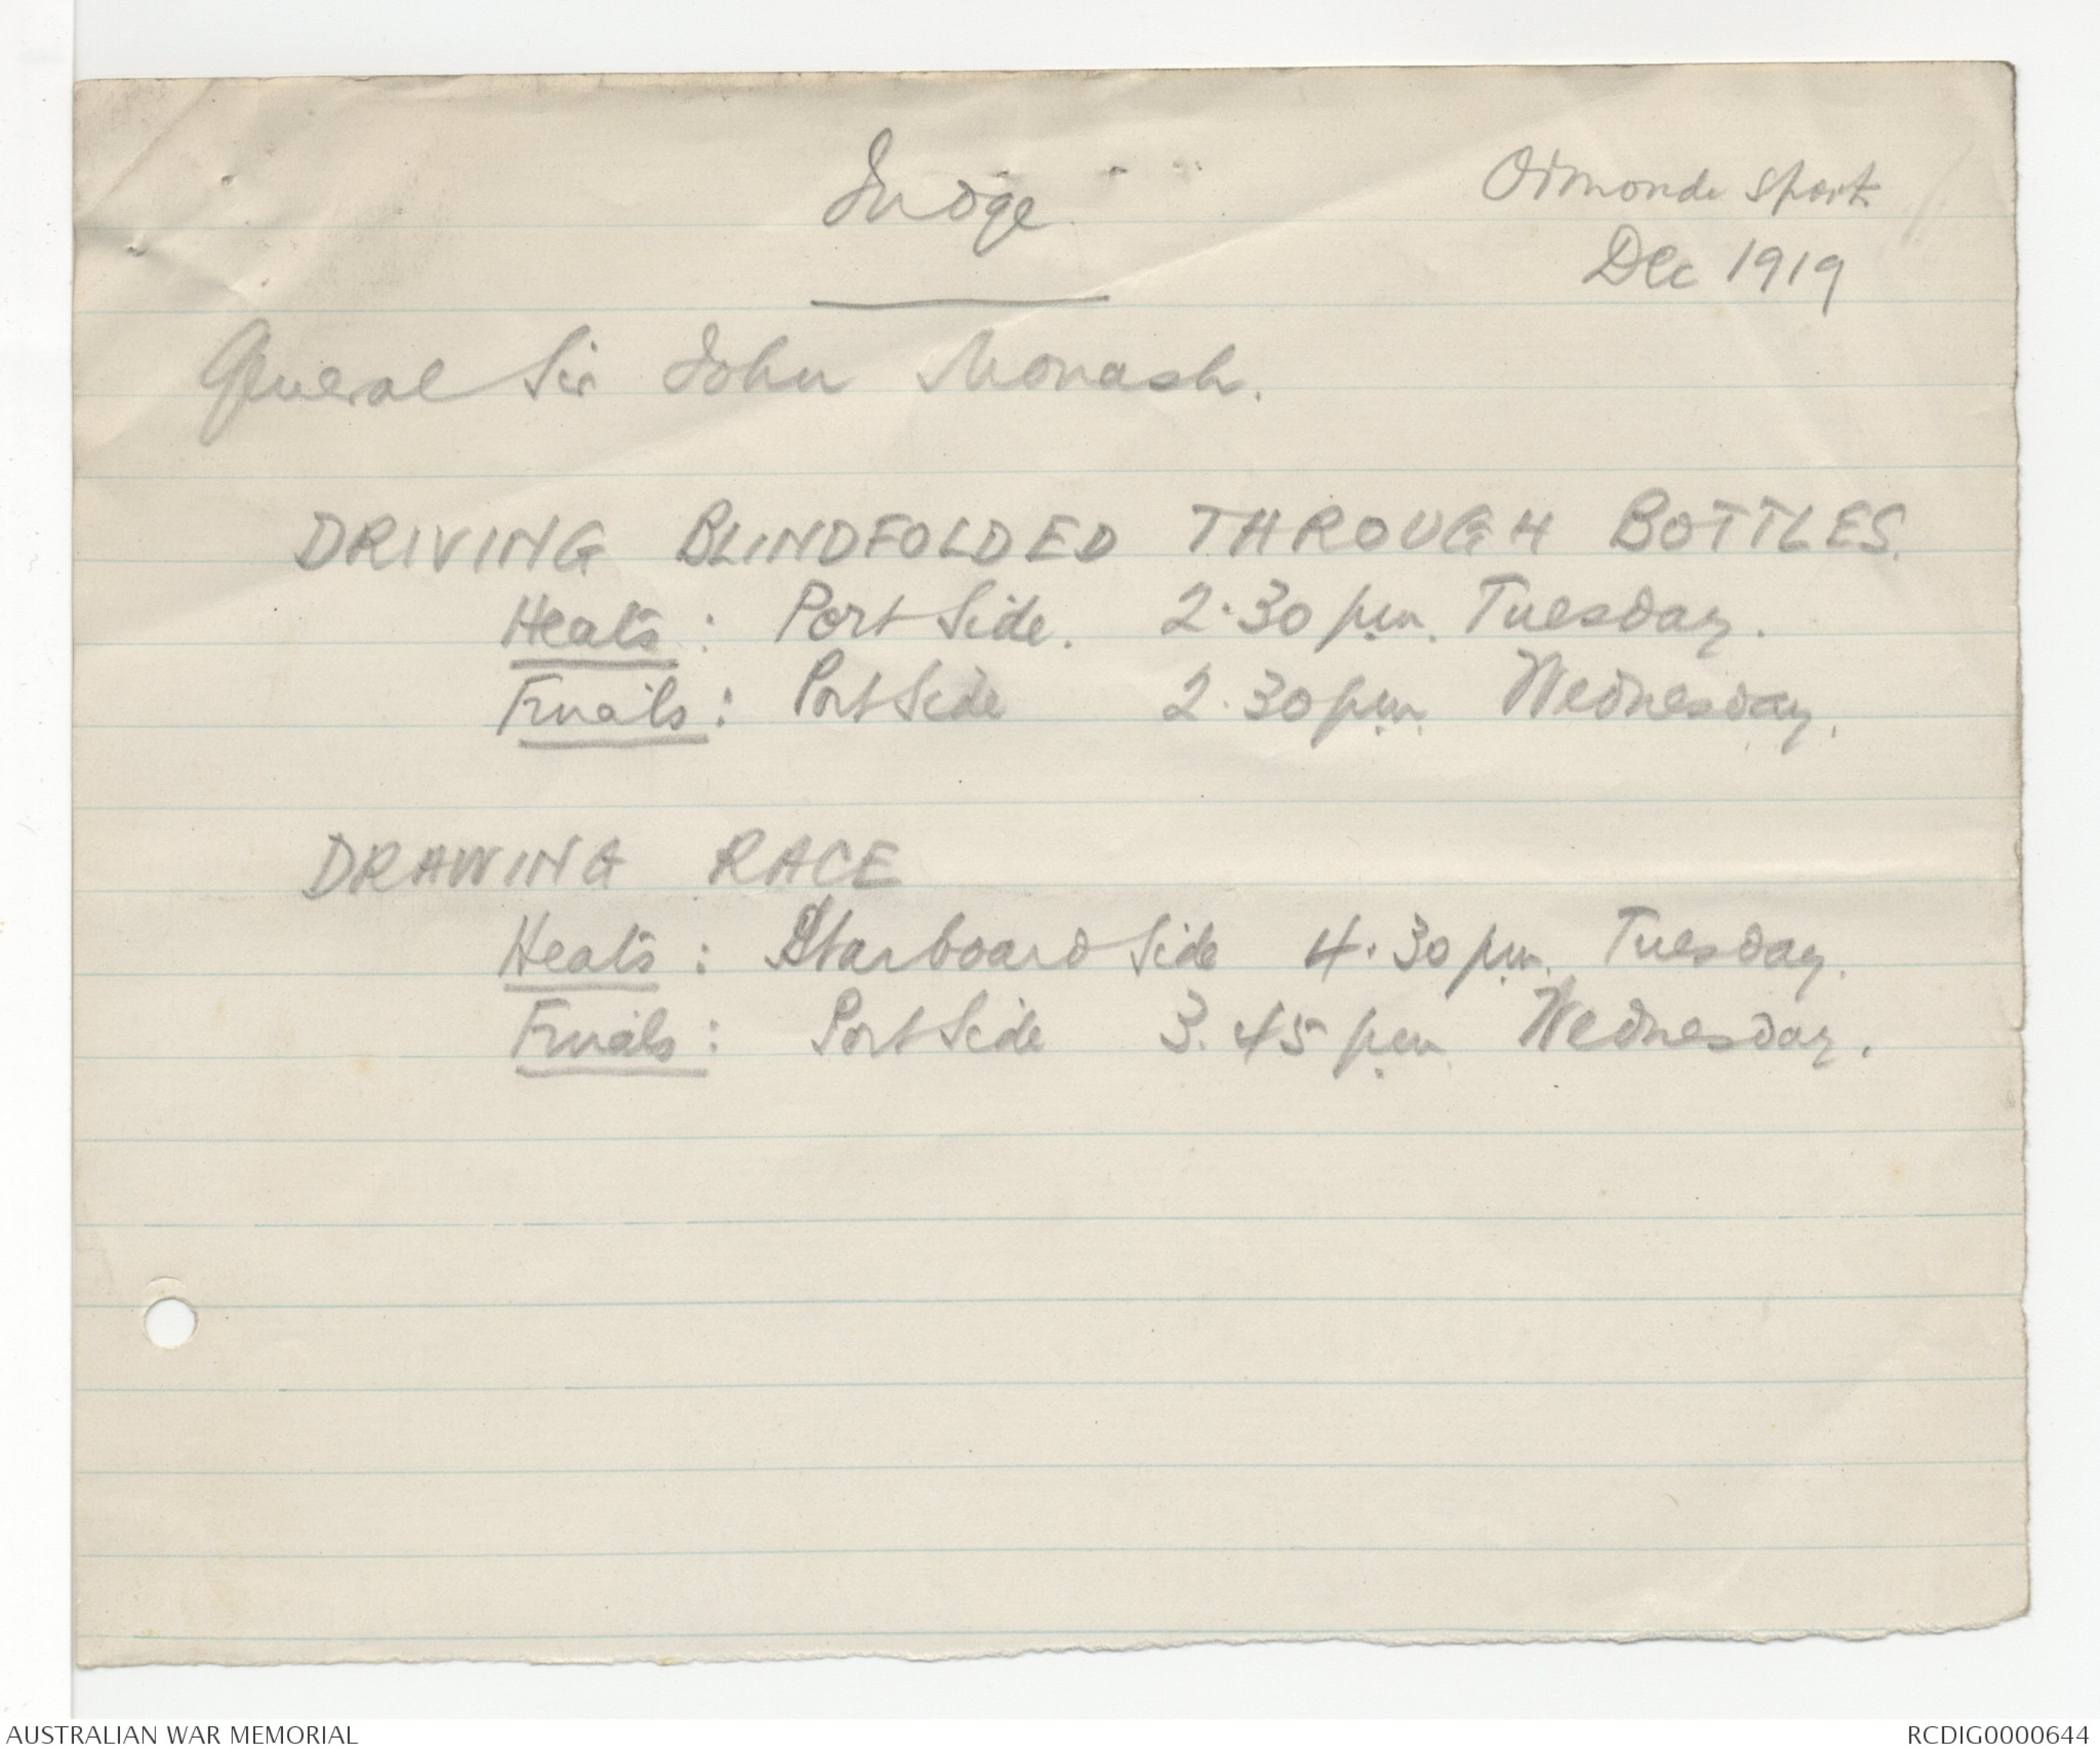 Judge
Ormonde Sports
Dec 1919
General Sir John Monash.
DRIVING BLINDFOLDED THROUGH BOTTLES.
Heats: Port Side. 2.30 p.m. Tuesday.
Finals: Port Side 2.30 p.m. Wednesday.
DRAWING RACE
Heats: Starboard Side 4.30 p.m. Tuesday.
Finals: Port Side 3.45 p.m. Wednesday.
AUSTRALIAN WAR MEMORIAL
RCDIG0000644